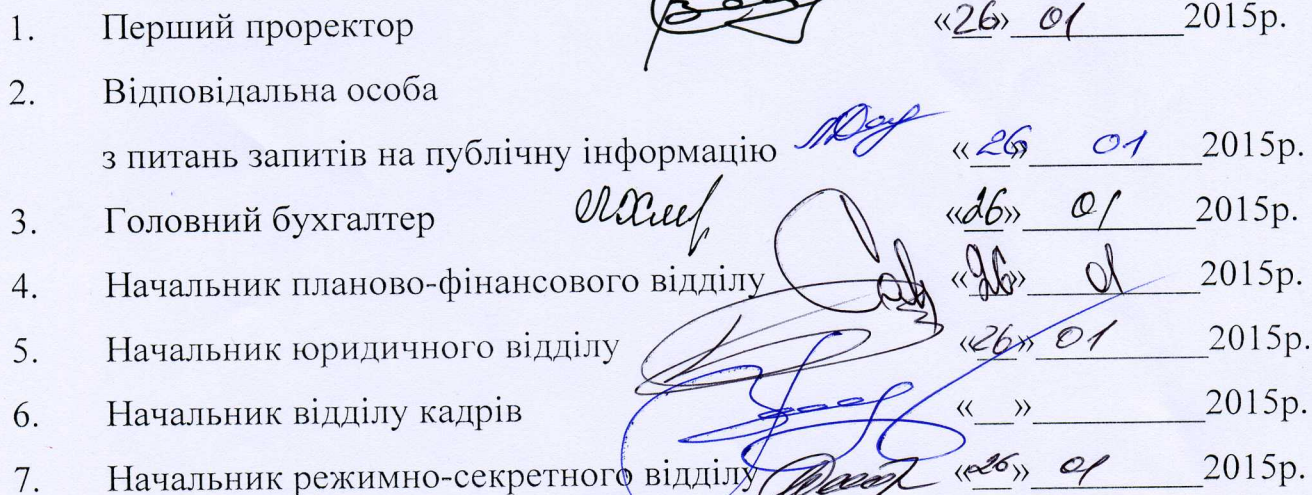 1. Перший проректор «26» 01 2015р.
2. Відповідальна особа
з питань запитів на публічну інформацію «26» 01 2015р.
3. Головний бухгалтер «26» 01 2015р.
4. Начальник планово-фінансового відділу «26» 01 2015р.
5. Начальник юридичного відділу «26» 01 2015р.
6. Начальник відділу кадрів «__» 2015р.
7. Начальник режимно-секретного відділу «26» 01 2015р.